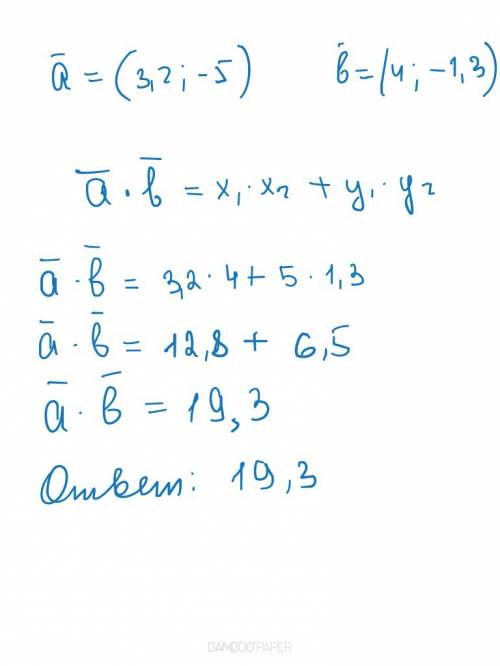 a̅ = (3,2 ; -5) b̅ = (4 ; -1,3)
a̅ · b̅ = x₁ · x₂ + y₁ · y₂
a̅ · b̅ = 3,2 · 4 + 5 · 1,3
a̅ · b̅ = 12,8 + 6,5
a̅ · b̅ = 19,3
Ответ: 19,3
BAMBOOPAPER